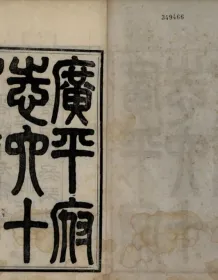 349466
廣平府
志六十